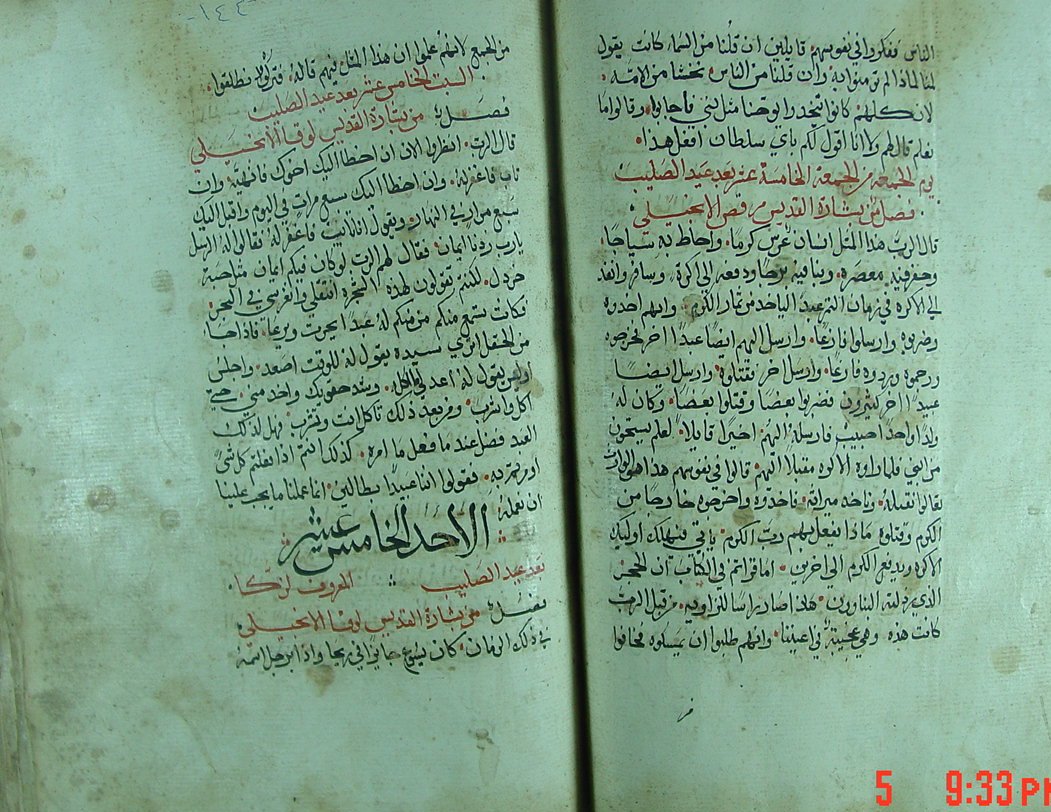 الناس ففكروا في نفوسهم قايلين ان قلنا من السما كانت يقول
لنا لماذا لم تومنوا به وان قلنا من الناس نخشا من الامه
لان كلهم كانوا يوحنا مثل نبي فاجابوا وقالوا ما
نعلم قال لهم ولا انا اقول لكم باي سلطان افعل هذا
يوم الجمعه من الجمعة الخامسة عشر بعد عيد الصليب
فصل من بشارة القديس مرقص الانجيلي
قال الرب هذا المثل انسان غرس كرما واحاط به سياجا
وحفر فيه معصره وبنا فيه برجا ودفعه الى اكرة وسافر وانفذ
الى الاكره في زمان الثمر عبدا لياخذ من ثمار الكرم وانهم اخذوه
وضربوه وارسلوا فارغا وارسل اليهم ايضا عبدا اخر فجرحوه
ورجموه وردوه فارغا وارسل اخر فقتلوه وارسل ايضا
عبيدا اخر كثيرون فضربوا بعضا وقتلوا بعضا وكان له
ولدا واحدا حبيب فارسله اليهم اخيرا قايلا لعلهم يستحون
من ابني فلما راوه الاكره مقبلا اليهم قالوا في نفوسهم هذا هو الوارث
تعالوا نقتله وناخذ ميراثه فاخذوه واخرجوه خارجا من
الكرم وقتلوه ماذا يفعل بهم رب الكرم ياتي فيهلك اوليك
الاكره ويدفع الكرم الى اخرين اما قراتم في الكتاب ان الحجر
الذي رذلته البناوون هذا صار راسا للزاويه من قبل الرب
كانت هذه وهي عجيبة في اعيننا وانهم طلبوا ان يمسكوه فخافوا
من
١٤٤
من الجمع لانهم علموا ان هذا المثل فيهم قاله فتركوه وانطلقوا
السبت الخامس عشر بعد عيد الصليب
فصل من بشارة القديس لوقا الانجيلي
قال الرب انظروا الان ان اخطا اليك اخوك فانهه وان
تاب فاغفر له وان اخطا اليك سبع مرات في اليوم واقبل اليك
سبع مرار في النهار ويقول انا تايب فاغفر له فقالوا له الرسل
يارب زدنا ايمان فقال لهم الرب لو كان فيكم ايمان مثل حبة
خردل لكنتم تقولون لهذه الشجره انتقلي وانغرسي في البحر
فكانت تسمع منكم من منكم له عبدا يحرث ويرعا فاذا جا
من الحقل اترى سيده يقول له للوقت اصعد واجلس
اوليس يقول له اعد لي ما اكله وشد حقويك واخدمني حتى
اكل واشرب ومن بعد ذلك تاكل انت وتشرب فهل لذلك
العبد فضل عندما فعل ما امره كذلك انتم اذا فعلتم كل شي
اومرتم به فقولوا اننا عبيدا بطالين انما عملنا ما يجب علينا
ان نعله
الاحد الخامس عشر
بعد عيد الصليب المعروف لزكا
فصل من بشارة القديس لوقا الانجيلي
في ذلك الزمان كان يسوع جايزا في ريحا واذا برجل اسمه
5 9:33